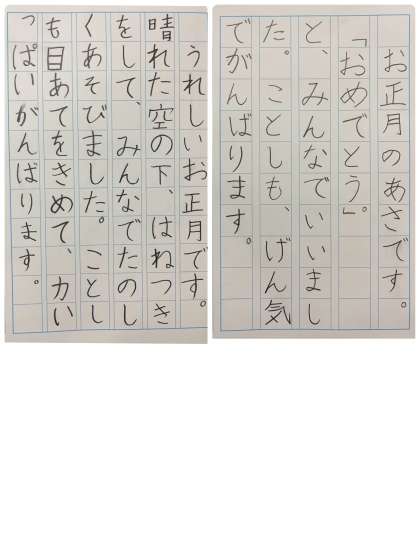 お正月のあさです。
「おめでとう」。
と、みんなでいいまし
た。ことしも、げん気
でがんばります。
うれしいお正月です。
晴れた空の下、はねつき
をして、みんなでたのし
くあそびました。ことし
も目あてをきめて、力い
っぱいがんばります。